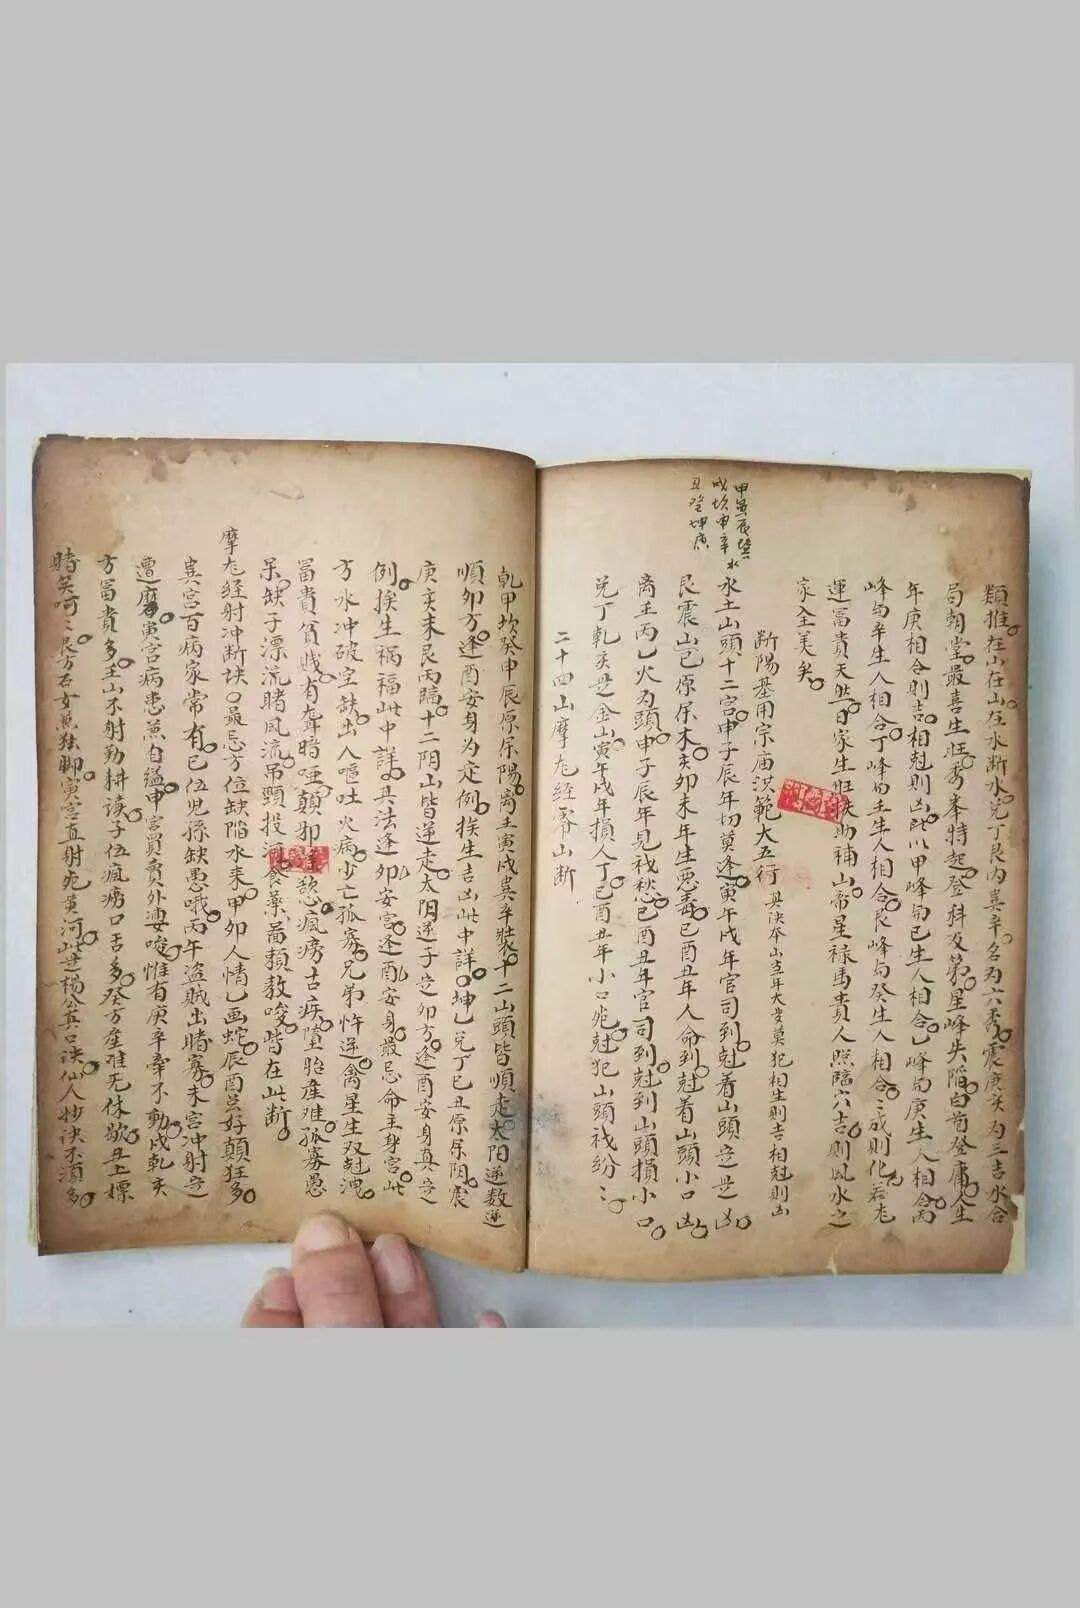 類推在山在山在水断水兑丁艮丙巽辛名为六秀震庚亥为三吉水合
局朝堂最喜生旺秀峯特起登科及第星峰失陷白首登庸人生
年庚相合則吉相尅則凶此以甲峰旬已生人相合乙峰旬庚生人相合丙
峰旬辛生人相合丁峰旬壬生人相合艮峰旬癸生人相合二成則化若尤
運富貴天然日家生旺扶助補山帝星禄馬貴人照臨穴吉則風水之
家全美矣
断陽基用宗庙洪範大五行 其决本山当年大发莫犯相生則吉相尅則凶
甲寅辰巽
戌坎申辛水
丑癸坤庚
水土山頭十二宫申子辰年切莫逢寅午戌年官司到尅着山頭定是凶
艮震山已原属木亥卯未年生恶毒巳酉丑年人命到尅着山頭小口凶
离壬丙乙火为頭申子辰年見禍愁巳酉丑年官司到尅到山頭損小口
兑丁乾亥是金山寅午戌年損人丁巳酉丑年小口死尅犯山頭禍纷二
二十四山摩尤經零山断
乹甲坎癸申辰原属陽离壬寅戌巽辛裝十二山頭皆順走太阳逆数逆
順卯方逢酉安身为定例挨生吉凶此中詳坤乙兑丁巳丑原属陰震
庚亥未艮丙臨十二阴山皆逆走太阴逆子定卯方逢酉安身真定
例挨生禍福此中詳其法逢卯安宫逢酉安身最忌命主身宫此
方水冲破字缺出人嘔吐火病少亡孤寡兄弟忤逆禽星生双尅洩
富貴貧贱有聋暗哑顛邪瘋痨古疾墮胎產难孤寡愚
呆缺子漂流賭風流吊頸投河食薬苗頼教唆皆在此断
摩尤经射冲断訣最忌方位缺陷水来甲卯人情乙画蛇辰酉并好顛狂多
巽宫百病家常有巳伍児孫缺愚哦丙午盗贼出賭寡未宫冲射定
遭摩寅宫病患蕉自縊申宫買賣外凄唆惟有庚辛牵不動戌乾亥
方富貴多壬山不射勤耕读子伍瘋痨口舌多癸方產难无休歇丑上嫖
賭笑呵二艮方石女蕉独脚寅宫直射死黄河此是杨公真口诀仙人抄诀不須多